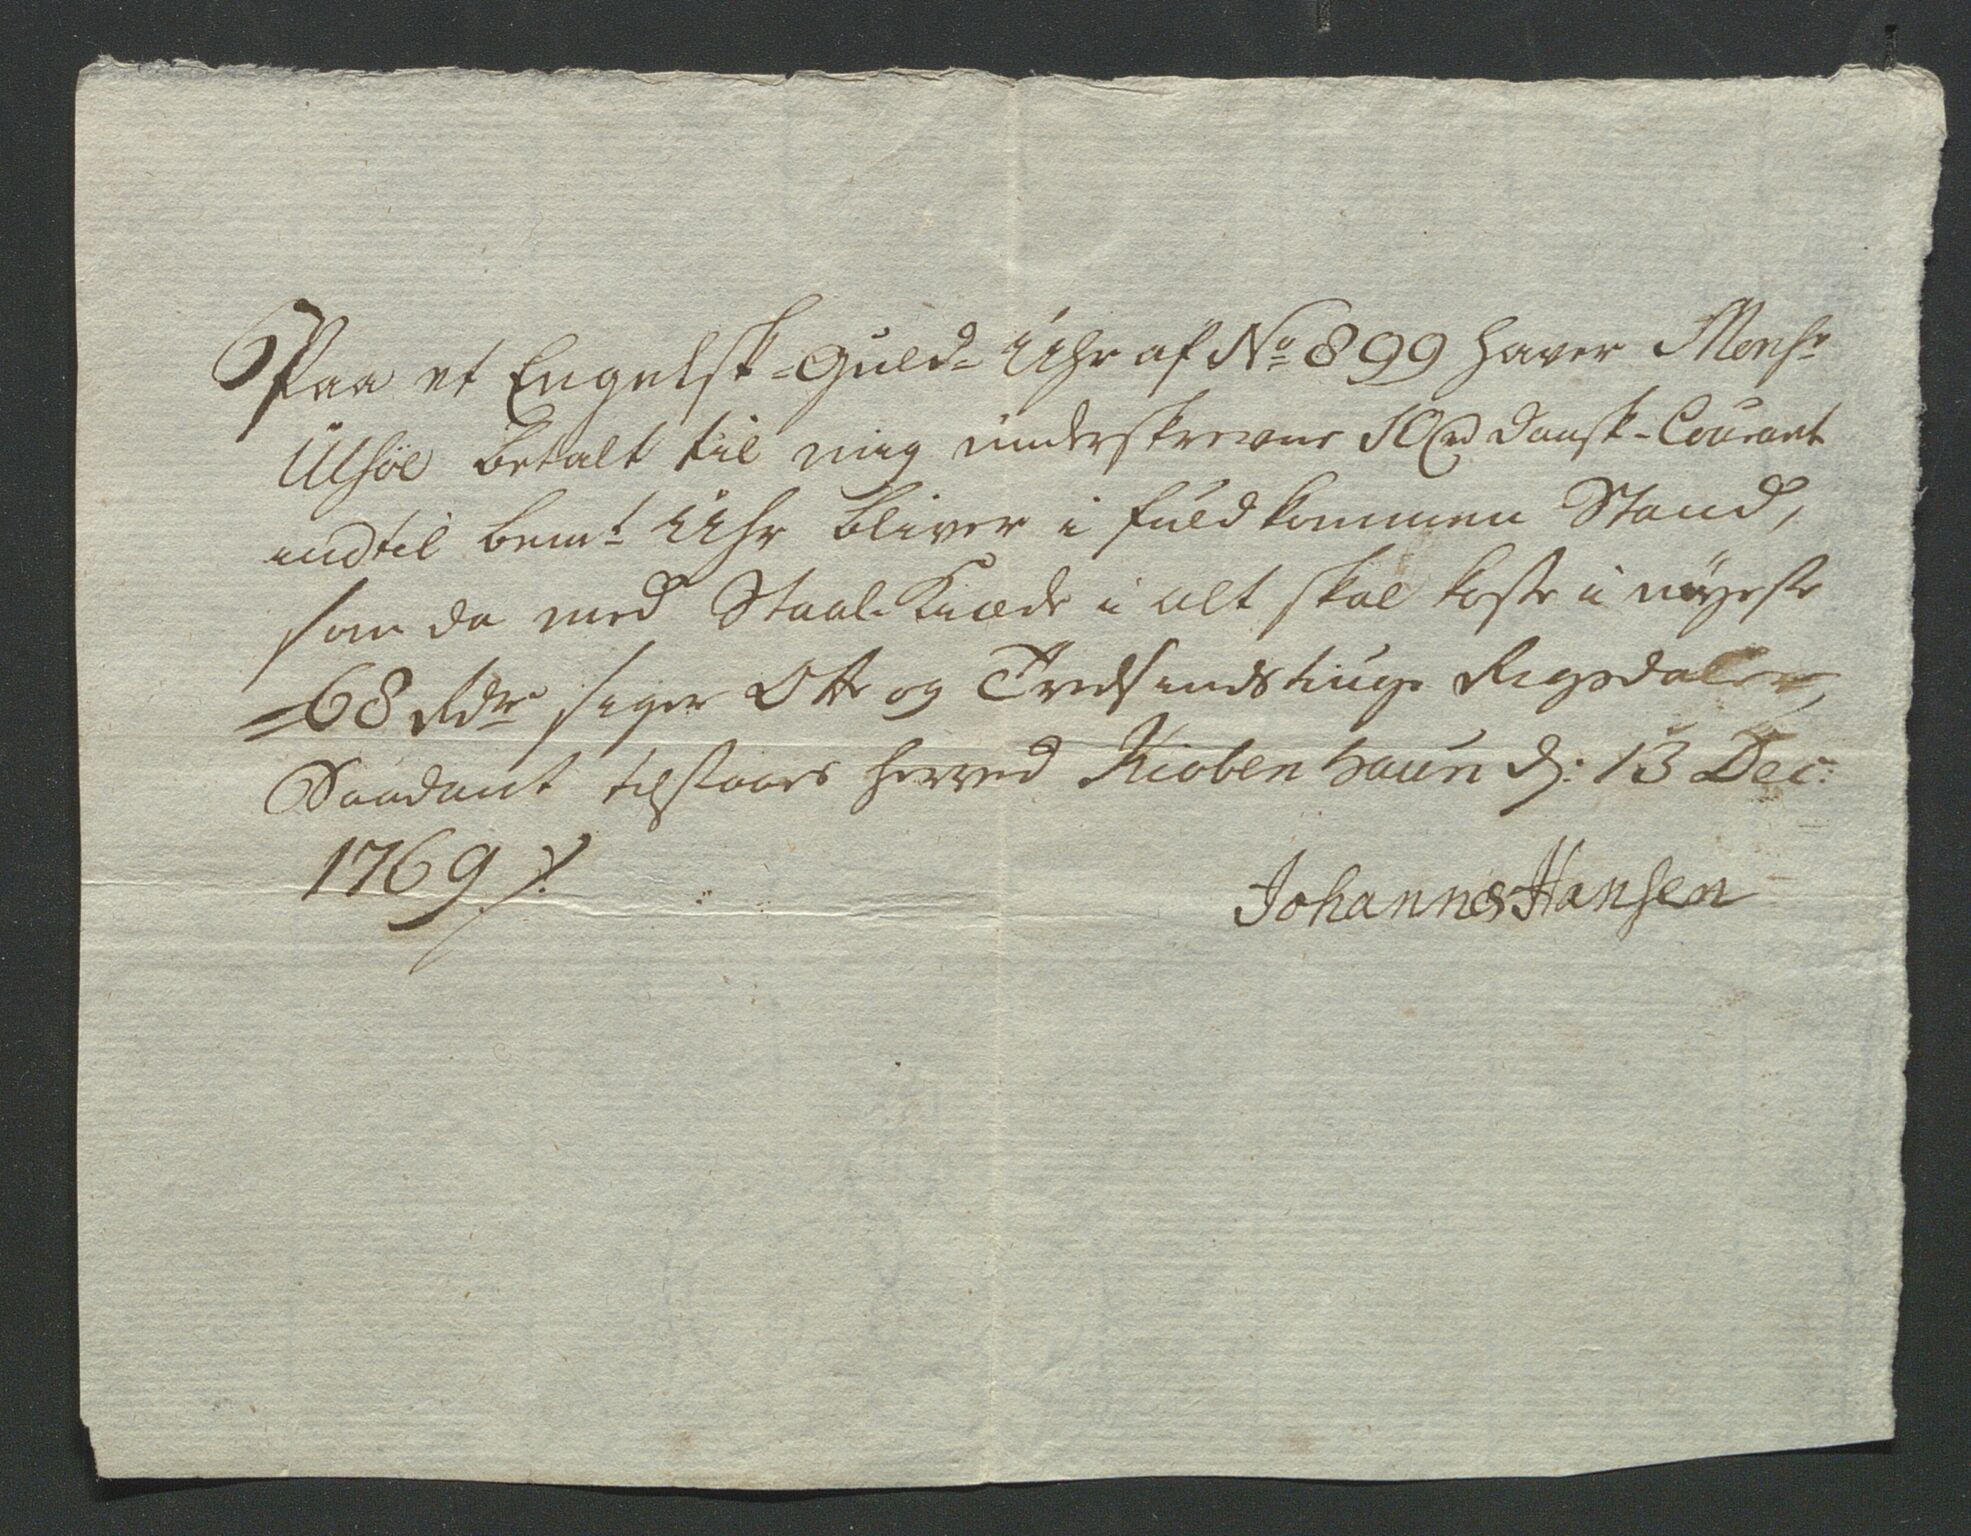 Paa et Engelsk-Guld- Uhr af No 899 haver Monsr
Ulsøe betalt til mig underskrevne Dansk-Courant
indtil bemt Uhr bliver i fuldkommen Stand,
som da med Staal-Kiæde i alt skal koste i nøyeste
=68 Rdr siger Otte og Tredsindstiuge Rigsdaler,
Saadant tilstaaes herved Kiobenhaun d: 13 Dec:
1769 ./.
Johannes Hansen